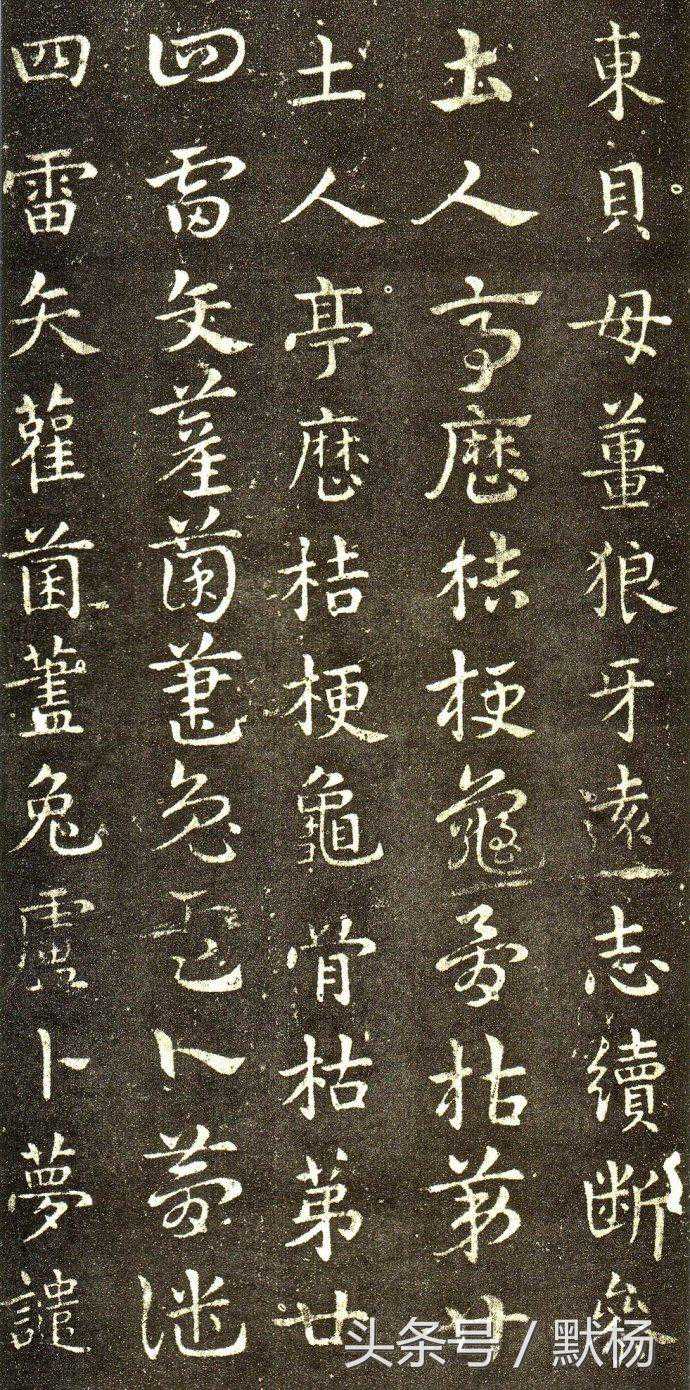 東貝母薑狼牙遠志續斷參
土人亭歷桔梗龜骨枯第廿
土人亭歷桔梗龜骨枯第廿
四雷矢雚菌藎兔盧卜夢譴
四雷矢雚菌藎兔盧卜夢譴
头条号 / 默杨